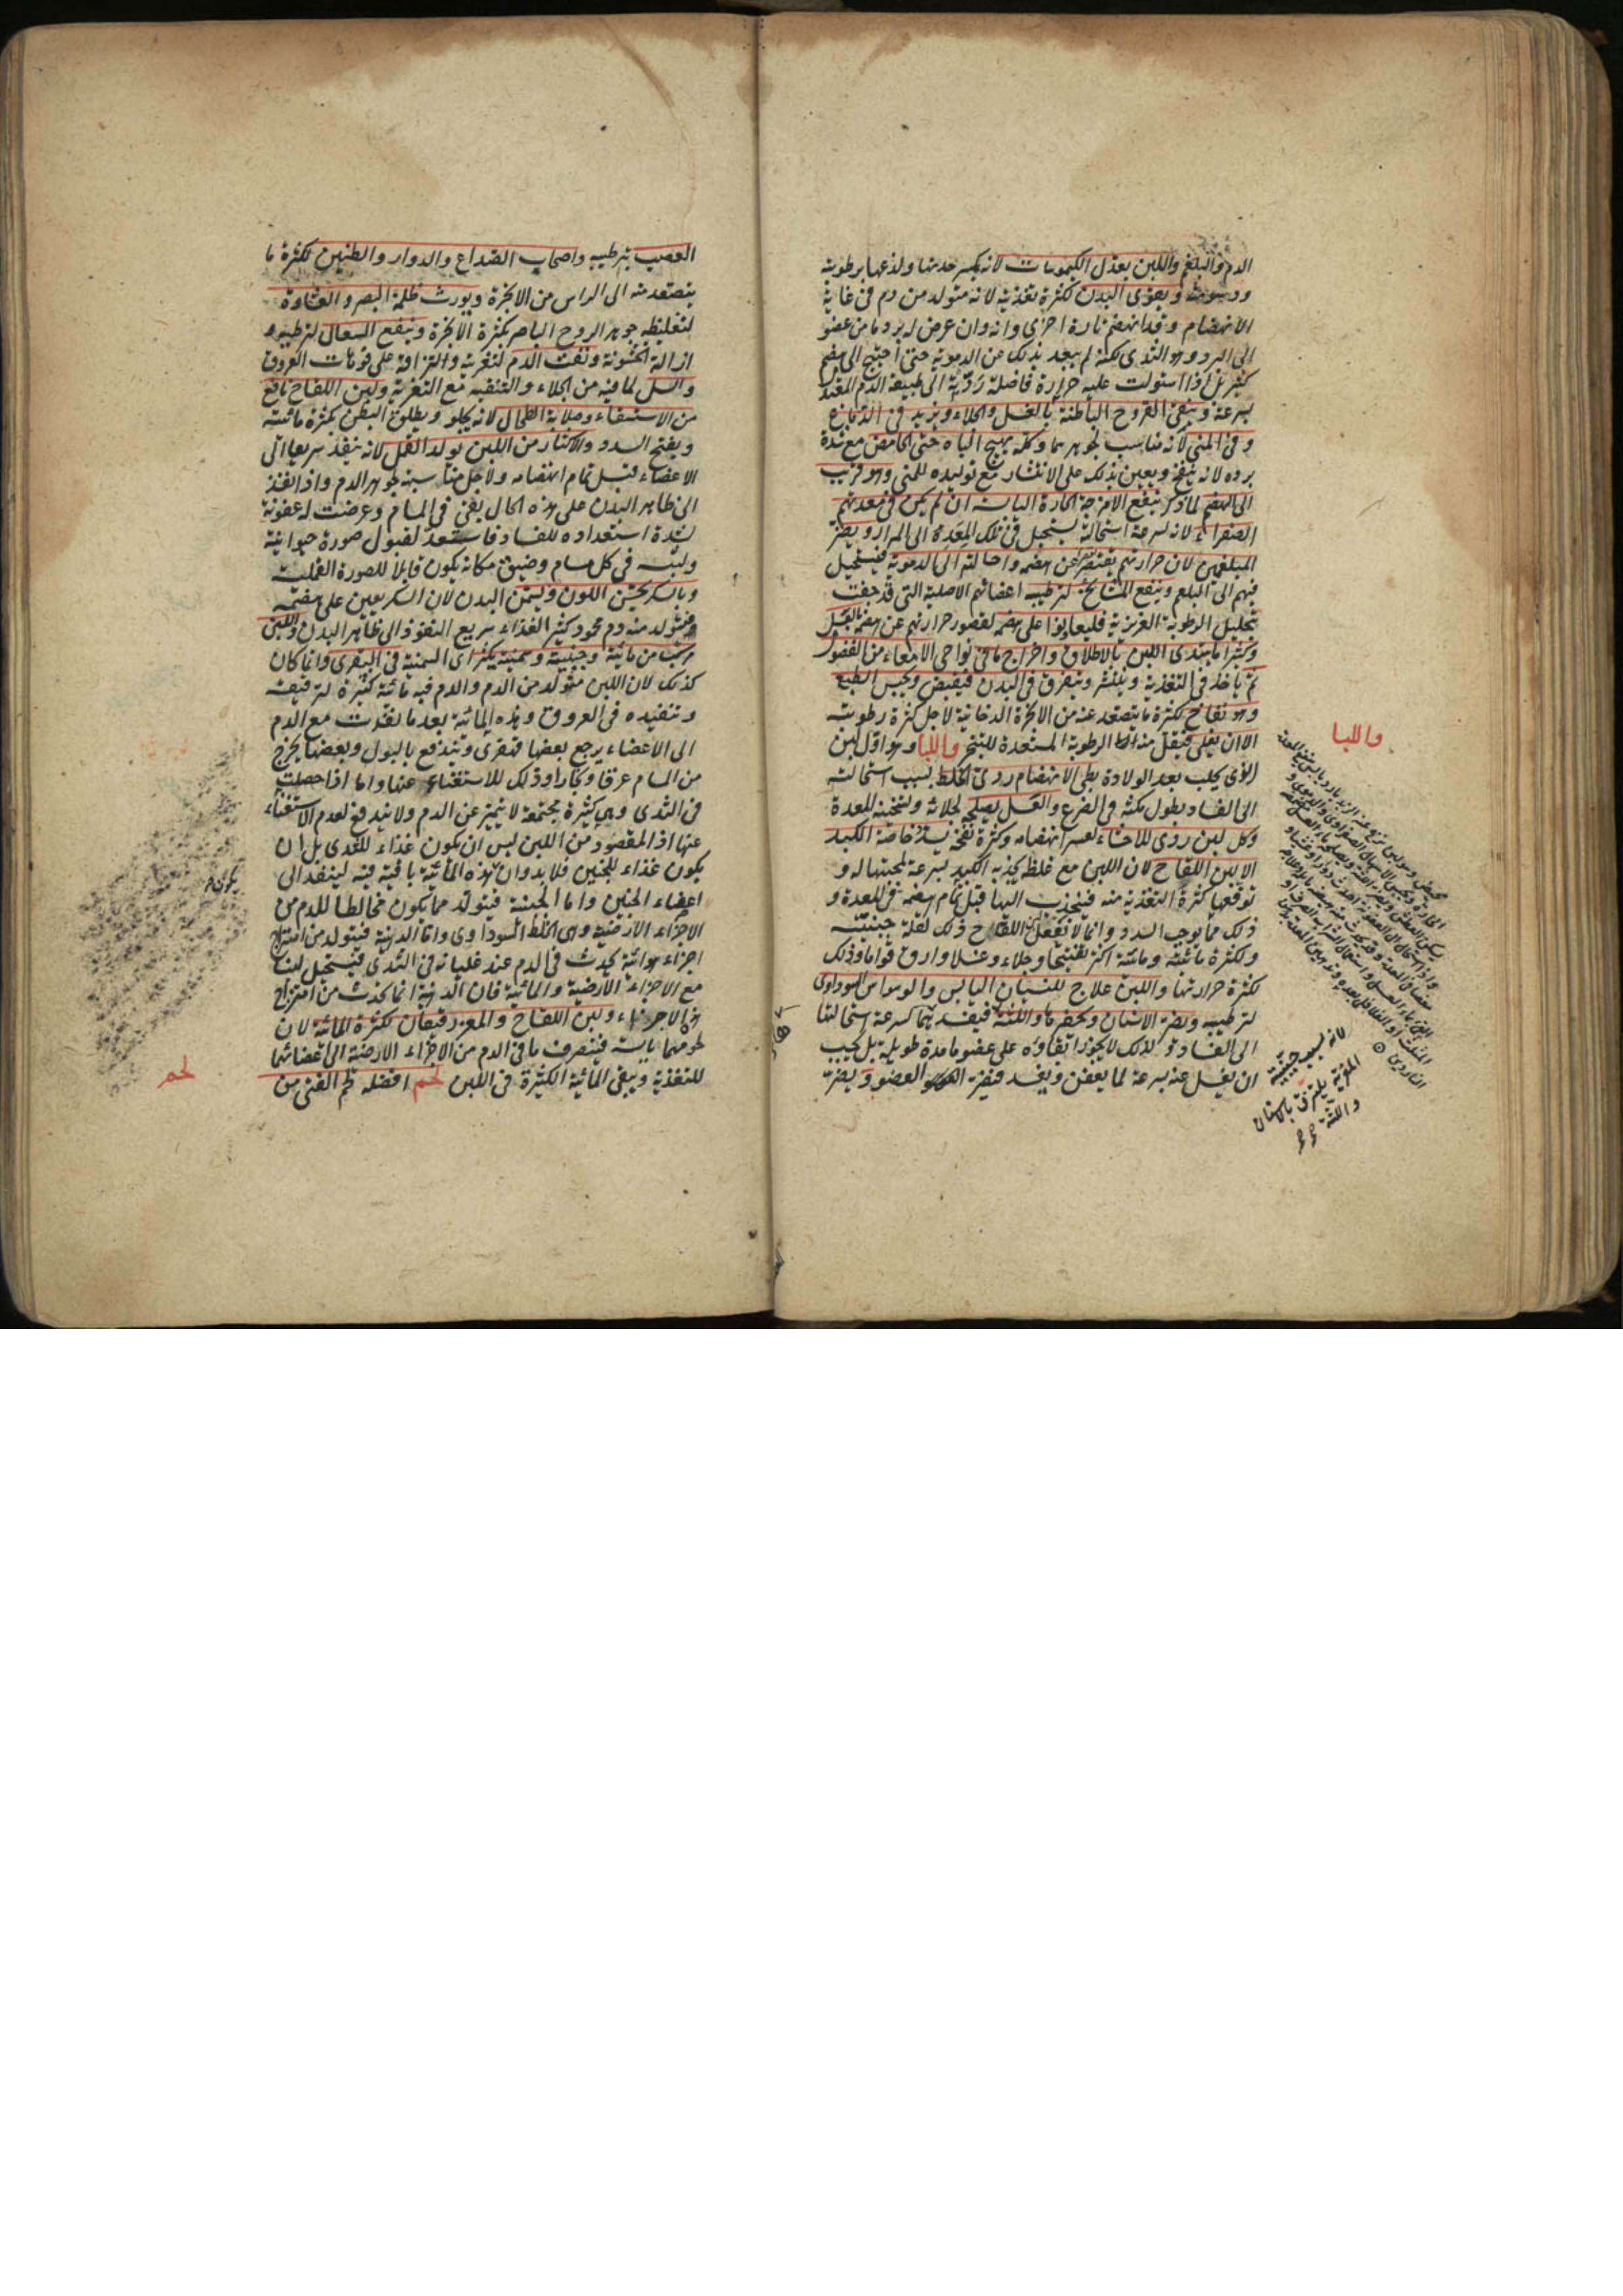 الدم والبلغم واللبن يعدل الكيموسات لانه يكسر حدتها ولذعها برطوبته
ودسومته ويقوى البدن لكثرة تغذيته لانه متولد من دم فى غاية
الانهضام وقد انهضم تارة اخرى وانه وان عرض له برد ما من عضو
الى البرد وهو الثدى لكنه لم يبعد بذلك عن الدموية حتى احتيج الى هضم
كثير بل اذا استولت عليه حرارة فاضلة ردته الى طبيعة الدم المعتدل
بسرعة وينقى القروح الباطنة بالغسل والجلاء ويزيد فى الدماغ
وفى المنى لانه مناسب لجوهرهما وكله يهيج الباه حتى الحامض مع شدة
برده لانه ينفخ ويعين بذلك على الانتشار مع توليده للمنى وهو قريب
الى الهضم لما ذكر ينفع الامزجة الحارة اليابسة ان لم يكن فى معدتهم
الصفراء لانه لسرعة استحالته يستحيل فى تلك المعدة الى المرار ويضر
المبلغمين لان حرارتهم تقصر عن هضمه واحالته الى الدموية فيستحيل
فيهم الى البلغم وينفع المشايخ لترطيبه اعضائهم الاصلية التى قد جفت
بتحليل الرطوبة الغريزية فليعاونوا على هضمه لقصور حرارتهم عن هضمه بالعسل
وكثيرا ما يبتدى اللبن بالاطلاق واخراج ما فى نواحى الامعاء من الفضول
ثم ياخذ فى التغذية وينتشر ويتفرق فى البدن فيقبض ويحبس الطبع
وهو نفاخ لكثرة ما يتصعد عنه من الابخرة الدخانية لاجل كثرة رطوبته
الا ان يغلى فيقل منه الرطوبة المستعدة للتبخر واللبا وهو اول لبن
الذى يحلب بعد الولادة بطى الانهضام ردى الخلط بسبب استحالته
الى الفساد بطول مكثه فى الضرع والعسل يصلحه لجلائه وتسخينه للمعدة
وكل لبن ردى للاحشاء لعسر انهضامه وكثرة نفخه يسدد خاصة الكبد
الا لبن اللقاح لان اللبن مع غلظه يجذبه الكبد بسرعة لمحبتها له و
توقعها كثرة التغذية منه فينجذب اليها قبل تمام هضمه فى المعدة و
ذلك مما يوجب السدد وانما لا تفعل لبن اللقاح ذلك لقلة جبنيته
ولكثرة مائيته ومائيته اكثر تفتيحا وجلاء وغسلا وارق قواما وذلك
لكثرة حرارتها واللبن علاج للنسيان اليابس والوسواس السوداوى
لترطيبه ويضر الاسنان ويحفرها واللثة فيفسدهما لسرعة استحالتها
الى الفساد ولذلك لا يجوز ابقاؤه على عضو ما مدة طويلة بل يجب
ان يغسل عنه بسرعة لما يعفن ويفسد فيضر العضو ويضر
واللبا
لانه بسبب جبنيته
المغرية يلتزق بالاسنان
واللثة
العصب بترطيبه واصحاب الصداع والدوار والطنين لكثرة ما
يتصعد منه الى الراس من الابخرة ويورث ظلمة البصر والغشاوة
لتغليظه جوهر الروح الباصر بكثرة الابخرة وينفع السعال لترطيبه و
ازالة الخشونة ونفث الدم لتغريته والتزاقه على فوهات العروق
والسل لما فيه من الجلاء والتنقية مع التغرية ولبن اللقاح نافع
من الاستسقاء وصلابة الطحال لانه يجلو ويطلق البطن بكثرة مائيته
ويفتح السدد والاكثار من اللبن يولد القمل لانه ينفذ سريعا الى
الاعضاء قبل تمام انهضامه ولاجل مناسبته لجوهر الدم واذا نفذ
الى ظاهر البدن على هذه الحال بقى فى المسام وعرضت له عفونة
لشدة استعداده للفساد فاستعد لقبول صورة حيوانية
وليس فى كل مسام وضيق مكانه يكون قابلا للصورة القملية
وبالسكر يحسن اللون ويسمن البدن لان السكر يعين على هضمه
فيتولد منه دم محمود كثير الغذاء سريع النفوذ الى ظاهر البدن واللبن
مركب من مائية وجبنية وسمنية يكثر اى السمنية فى البقرى وانما كان
كذلك لان اللبن متولد من الدم والدم فيه مائية كثيرة لترقيقه
وتنفيذه فى العروق وهذه المائية بعد ما نفذت مع الدم
الى الاعضاء يرجع بعضها قهقرى وتندفع بالبول وبعضها يخرج
من المسام عرقا وبخارا وذلك للاستغناء عنها واما اذا حصلت
فى الثدى وهى كثيرة مجتمعة لا تتميز عن الدم ولا تندفع لعدم الاستغناء
عنها اذ المقصود من اللبن ليس ان يكون غذاء للثدى بل ان
يكون غذاء للجنين فلا بد وان هذه المائية باقية فيه لينفذ الى
اعضاء الجنين واما الجبنية فيتولد مما يكون مخالطا للدم من
الاجزاء الارضية وهى الخلط السوداوى واما الدهنية فيتولد من امتزاج
اجزاء هوائية يحدث فى الدم عند غليانه فى الثدى فيستحيل لبنا
مع الاجزاء الارضية والمائية فان الدهنية انما تحدث من امتزاج
هذه الاجزاء ولبن اللقاح والمعز رقيقان لكثرة المائية لان
لحومهما يابسة فينصرف ما فى الدم من الاجزاء الارضية الى اعضائهما
للتغذية ويبقى المائية الكثيرة فى اللبن لحم افضله لحم الفتى من
يكون
لحم